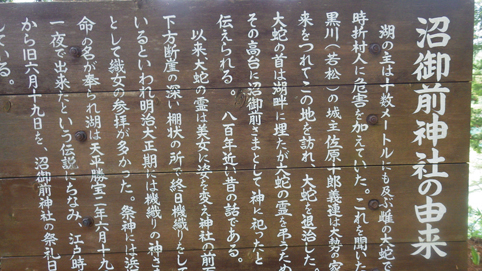 沼御前神社の由来
湖の主は十数メートルにも及ぶ雌の大蛇で
時折村人に危害を加えていた。これを聞いた
黒川（若松）の城主佐原十郎義連は大勢の家
来をつれてこの地を訪れ、大蛇を退治した。
大蛇の首は湖畔に埋たが大蛇の霊を弔うため
その高台に沼御前さまとして神に祀ったと
伝えられる。八百年近い昔の話である。
以来大蛇の霊は美女に姿を変え神社の前
下方断崖の深い棚状の所で終日機織りをして
いるといわれ明治大正期には機織りの神さま
として織女の参拝が多かった。祭神には浜
命の名が奉られ湖は天平勝宝二年六月十九
一夜で出来たという伝説にちなみ、江戸時
から旧六月十九日を、沼御前神社の祭礼日
している。